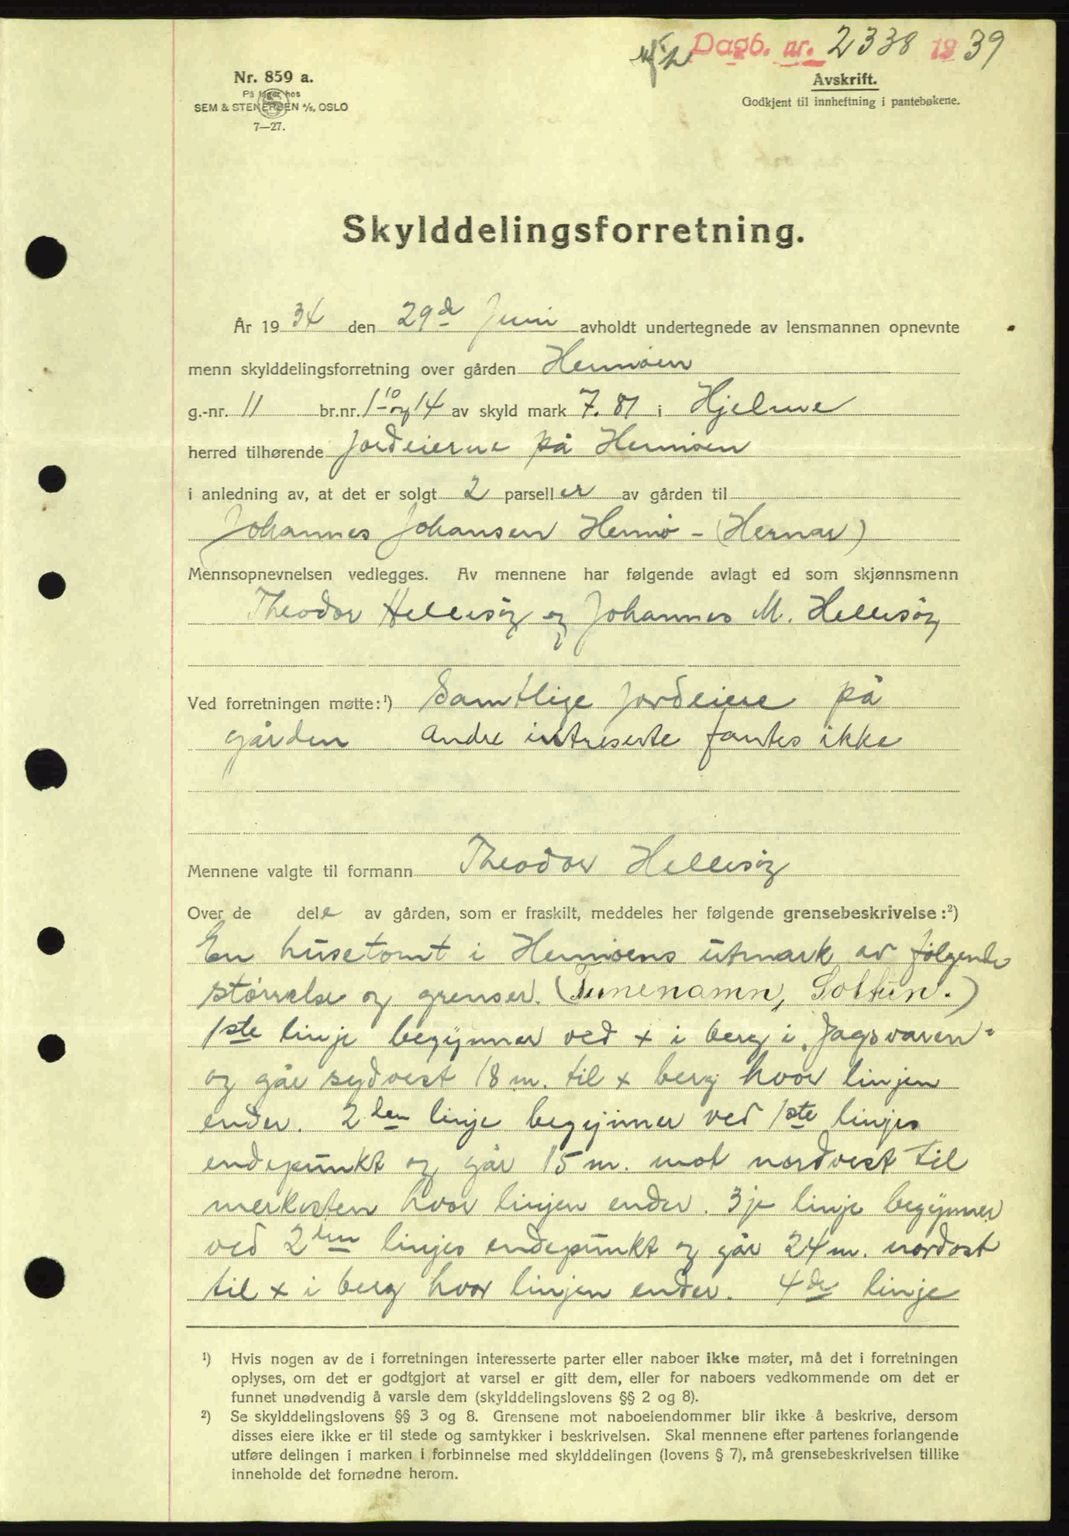 Dagb. nr. 2338 1939
Nr. 859 a.
På lager hos
SEM & STENERSEN A/S, OSLO
7—27.
Avskrift.
Godkjent til innheftning i pantebøkene.
Skylddelingsforretning.
År 1934 den 29de Juni avholdt undertegnede av lensmannen opnevnte
menn skylddelingsforretning over gården Hennøen
g.-nr. 11 br.nr. 1-10 og 14 av skyld mark 7.81 i Hjelme
herred tilhørende Jordeierne på Hennøen
i anledning av, at det er solgt 2 parseller av gården til
Johannes Johansen Hennø - (Hernar)
Mennsopnevnelsen vedlegges. Av mennene har følgende avlagt ed som skjønnsmenn
Theodor Hellesöy og Johannes M. Hellesöy
Ved forretningen møtte:¹) Samtlige jordeiere på
gården Andre intreserte fantes ikke
Mennene valgte til formann Theodor Hellesöy
Over de dele av gården, som er fraskilt, meddeles her følgende grensebeskrivelse:²)
En husetomt i Hennøens utmark av følgende
størrelse og grenser. (Tunenamn, Soltun.)
1ste linje begynner ved x i berg i „Dagsvaren"
og går sydvest 18 m. til x berg hvor linjen
ender. 2den linje begynner ved 1ste linjes
endepunkt og går 15 m. mot nordvest til
merkesten hvor linjen ender. 3je linje begynner
ved 2den linjes endepunkt og går 24 m. nordost
til x i berg hvor linjen ender. 4de linje
¹) Hvis nogen av de i forretningen interesserte parter eller naboer ikke møter, må det i forretningen
oplyses, om det er godtgjort at varsel er gitt dem, eller for naboers vedkommende om det er
funnet unødvendig å varsle dem (skylddelingslovens §§ 2 og 8).
²) Se skylddelingslovens §§ 3 og 8. Grensene mot naboeiendommer blir ikke å beskrive, dersom
disses eiere ikke er til stede og samtykker i beskrivelsen. Skal mennene efter partenes forlangende
utføre delingen i marken i forbinnelse med skylddelingen (lovens § 7), må grensebeskrivelsen tillike
inneholde det fornødne herom.